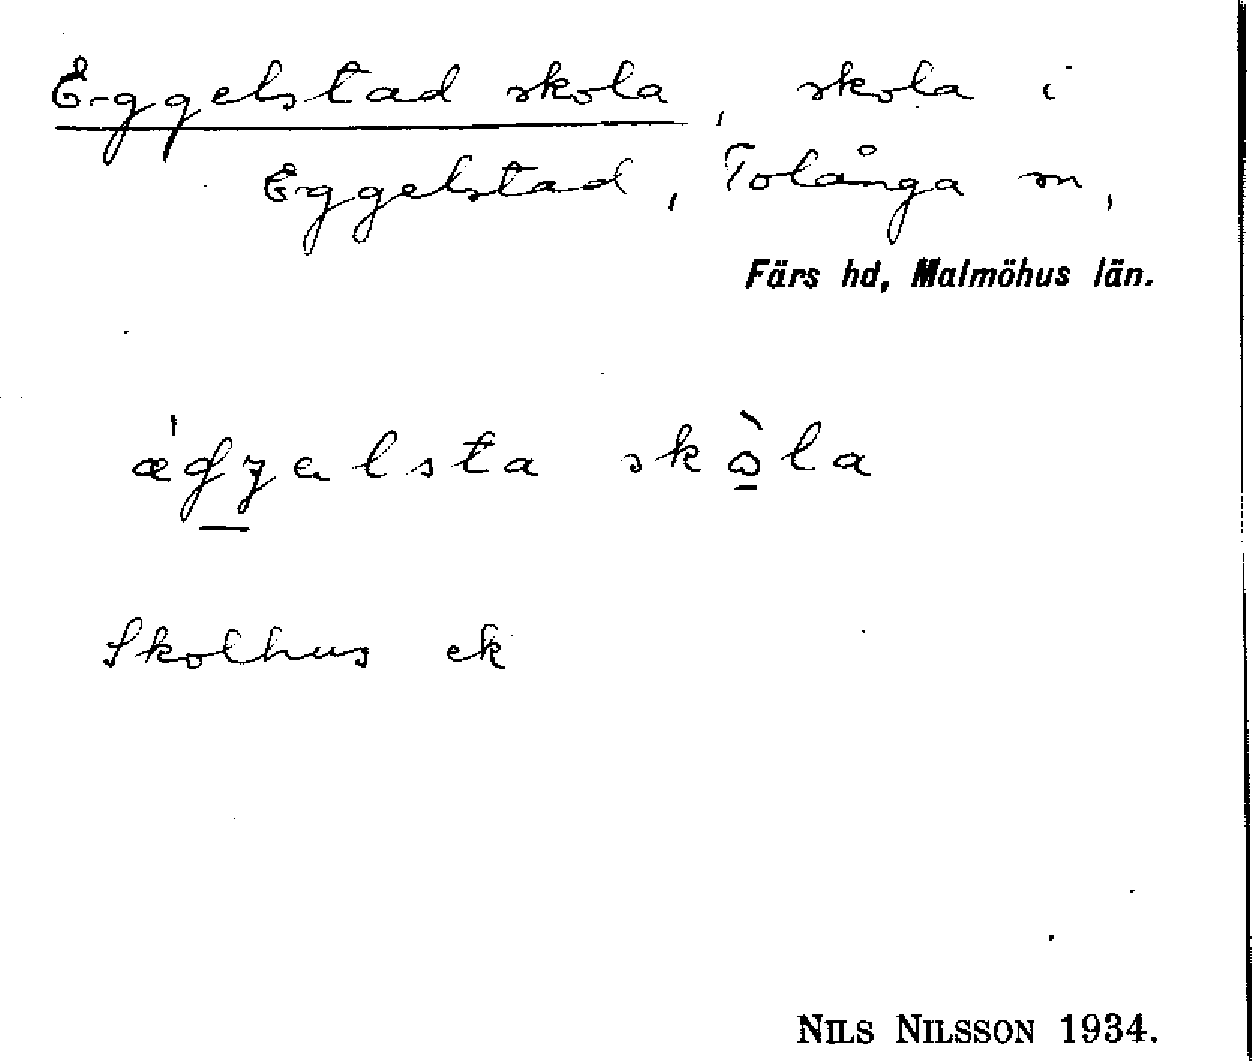 Eggelstad skola, skola i
Eggelstad, Tolånga sn,
Färs hd, Malmöhus län.
skò̱la
Skolhus ek
NILS NILSSON 1934.